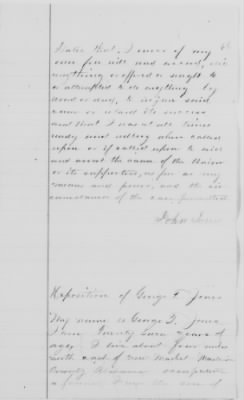 I never of my
own free will and accord, did
anything or offered or sought to
or attempted to do anything by
word or deed, to injure said
cause or retard its success
and that I was at all times
ready and willing when called
upon or if called upon to aid
and assist the cause of the Union
or its supporters, so far as my
means and power, and the
circumstances of the case permitted
John
Exposition of George T. Jones
My name is George T. Jones
I am Twenty years of
age. I live about four miles
east of New Market Madison
County Alabama occupation
a farmer the son of